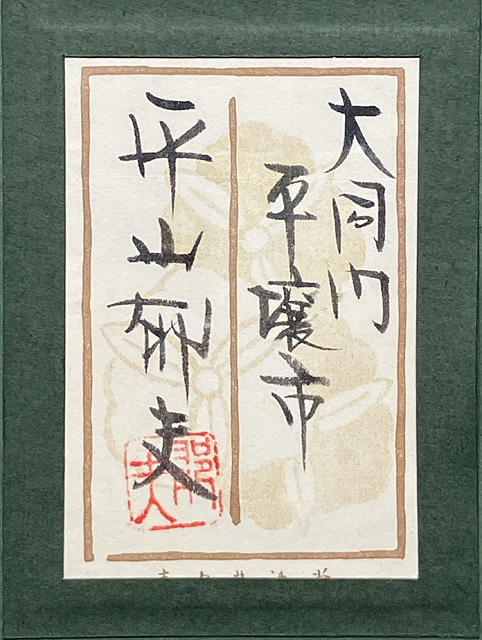 大同门
平壌市
平山郁夫